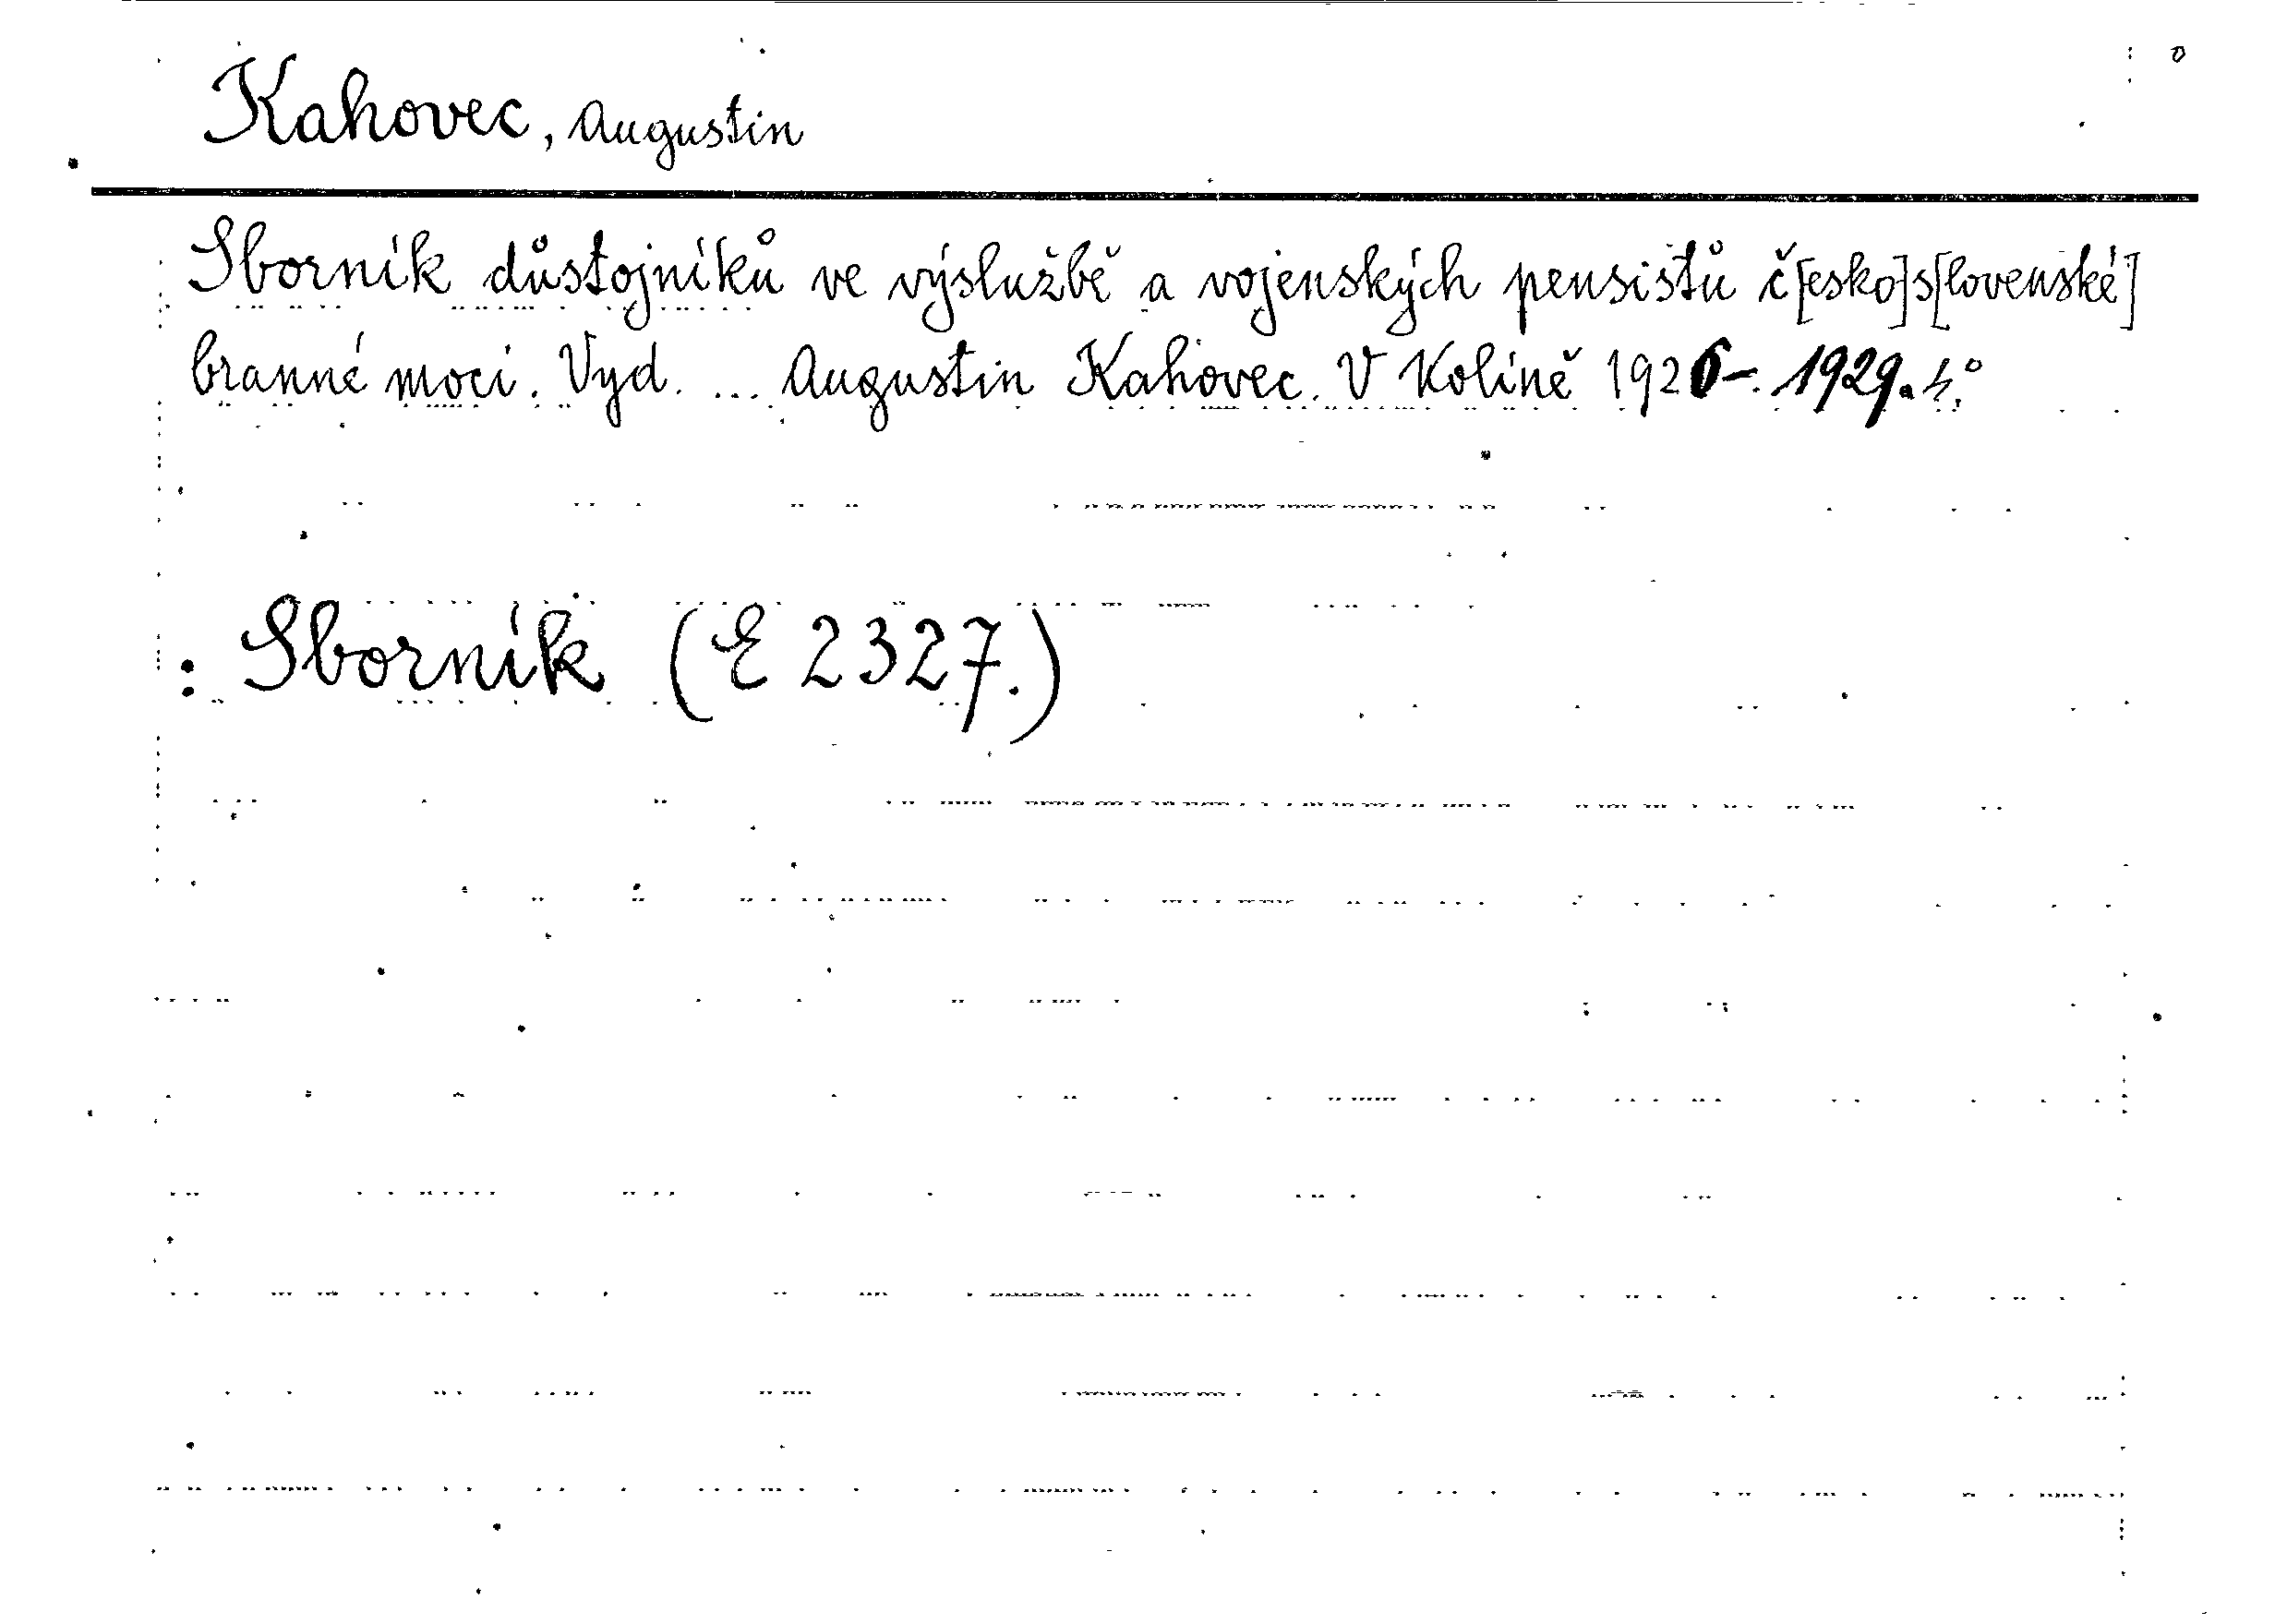 Kahovec, Augustin
Sborník důstojníků ve výslužbě a vojenských pensistů č[esko]s[lovenské]
branné moci. Vyd. ... Augustin Kahovec. V Kolíně 1926-. 1929. 4.°
: Sborník (E 2327.)